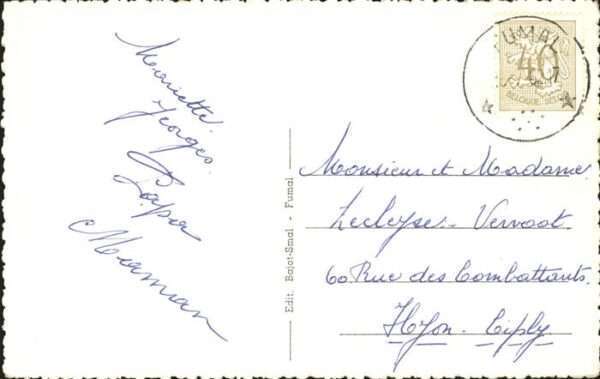 Mariette
Georges
Papa
Maman
Edit. Bajot-Smal - Fumal
FUMAL
40
BELGIQUE BELGIE
Monsieur et Madame
Lecleyse-Vervoot
60 Rue des Combattants
Hyon-Ciply